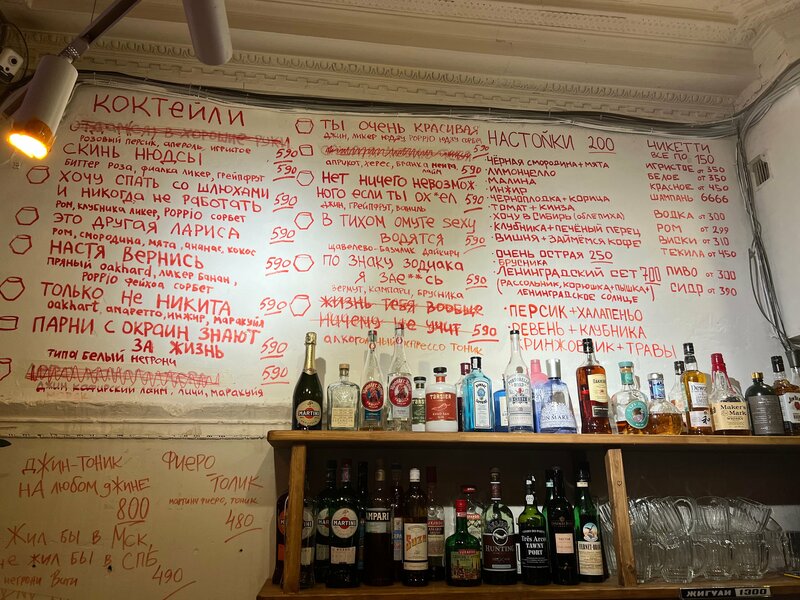 КОКТЕЙЛИ
розовый персик, апероль, игристое
СКИНЬ НЮДСЫ 590
биттер роза, фиалка ликер, грейпфрут
ХОЧУ СПАТЬ СО ШЛЮХАМИ
И НИКОГДА НЕ РАБОТАТЬ 590
ром, клубника ликер, роррiо сорбет
ЭТО ДРУГАЯ ЛАРИСА 590
ром, смородина, мята, ананас, кокос
НАСТЯ ВЕРНИСЬ 590
пряный oakhard, ликер банан,
роррiо фейхоа сорбет
ТОЛЬКО НЕ НИКИТА 590
oakhart, амаретто, инжир, маракуйя
ПАРНИ С ОКРАИН ЗНАЮТ
ЗА ЖИЗНЬ 590
типа белый негрони
590
личи, маракуйя
ТЫ ОЧЕНЬ КРАСИВАЯ
590
абрикот, херес, бранка мента,
лайм
НЕТ НИЧЕГО НЕВОЗМОЖ-
НОГО ЕСЛИ ТЫ ОХ*ЕЛ 590
джин, грейпфрут, ваниль
В ТИХОМ ОМУТЕ SEXY
ВОДЯТСЯ 590
щавелево-базилик дайкири
ПО ЗНАКУ ЗОДИАКА
Я ЗАЕ**СЬ 590
вермут, кампари, брусника
ЖИЗНЬ ТЕБЯ ВООБЩЕ
НИЧЕМУ НЕ УЧИТ 590
тоник
НАСТОЙКИ 200
· ЧЁРНАЯ СМОРОДИНА + МЯТА
· ЛИМОНЧЕЛЛО
· МАЛИНА
· ИНЖИР
· ЧЕРНОПЛОДКА + КОРИЦА
· ТОМАТ + КИНЗА
· ХОЧУ В СИБИРЬ (ОБЛЕПИХА)
· КЛУБНИКА + ПЕЧЁНЫЙ ПЕРЕЦ
· ВИШНЯ + ЗАЙМЁМСЯ КОФЕ
· ОЧЕНЬ ОСТРАЯ 250
· БРУСНИКА
· ЛЕНИНГРАДСКИЙ СЕТ 700
(РАССОЛЬНИК, КОРЮШКА + ПЫШКА +
ЛЕНИНГРАДСКОЕ СОЛНЦЕ
· ПЕРСИК + ХАЛАПЕНЬО
РЕВЕНЬ + КЛУБНИКА
+ ТРАВЫ
ЧИКЕТТИ
ВСЕ ПО 150
ИГРИСТОЕ от 350
БЕЛОЕ от 350
КРАСНОЕ от 450
ШАМПАНЬ 6666
ВОДКА от 300
РОМ от 299
ВИСКИ от 310
ТЕКИЛА от 450
ПИВО от 300
СИДР от 390
ДЖИН-ТОНИК
НА ЛЮБОМ ДЖИНЕ
800
ФИЕРО
ТОЛИК
мартини фиеро, тоник
480
ЖИЛ БЫ В МСК,
НЕ ЖИЛ БЫ В СПБ
негрони
490
MARTINI
TORSIER
Maker's
Mark
MARTINI
MARTINI
CAMPARI
Suze
HUNTING
Três Arcos
TAWNY
PORT
FERNET-BRANCA
ЖИГУЛИ 1300